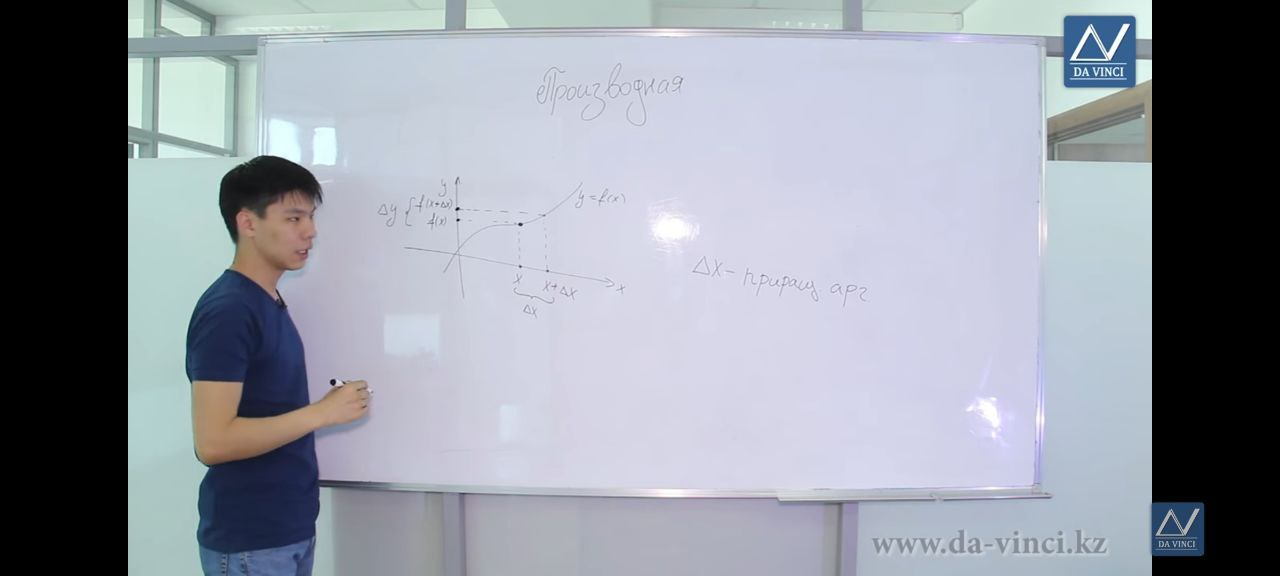 DA VINCI
Производная
y
y = f(x)
Δy { f(x+Δx)
f(x)
x
x+Δx
x
Δx
Δx – приращ. арг
www.da-vinci.kz
DA VINCI